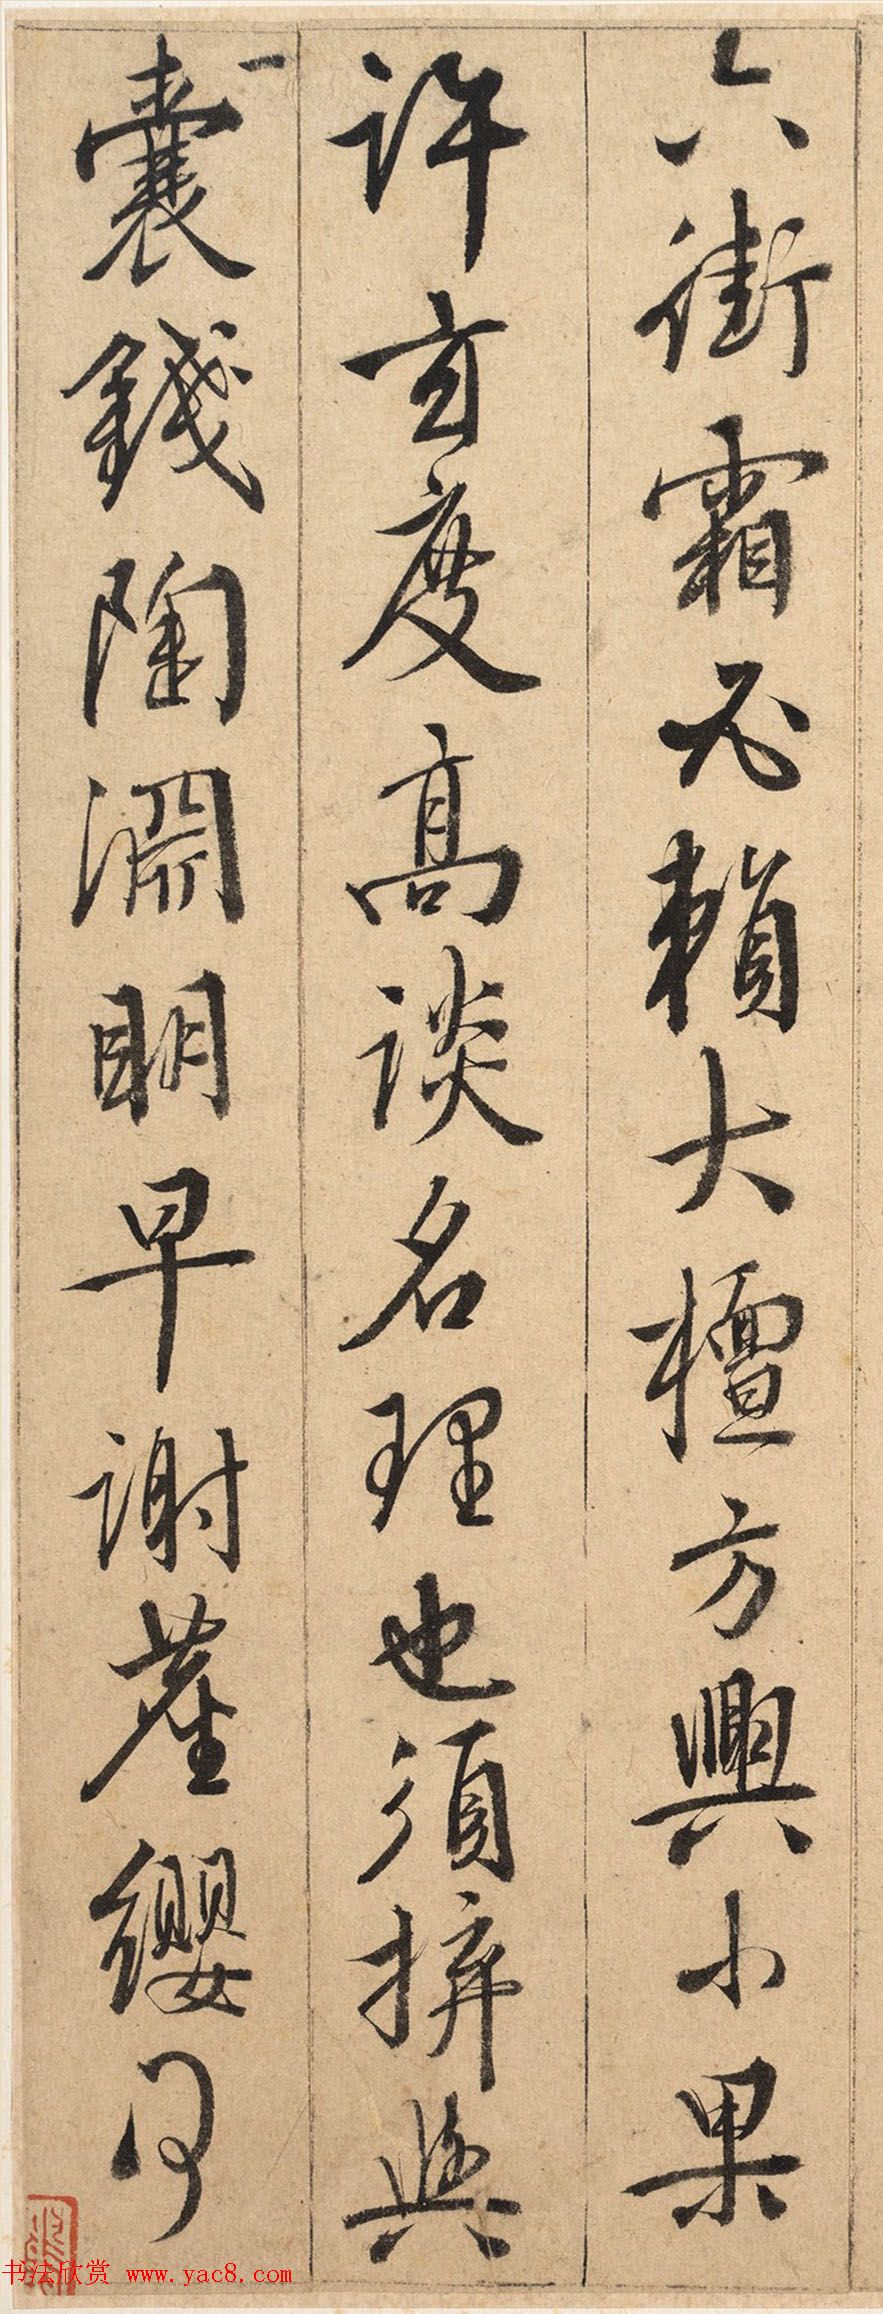 六街霜必賴大檀方興小果
許玄度高談名理也須拚與
一囊錢陶淵明早謝塵纓何
书法欣赏 www.yac8.com